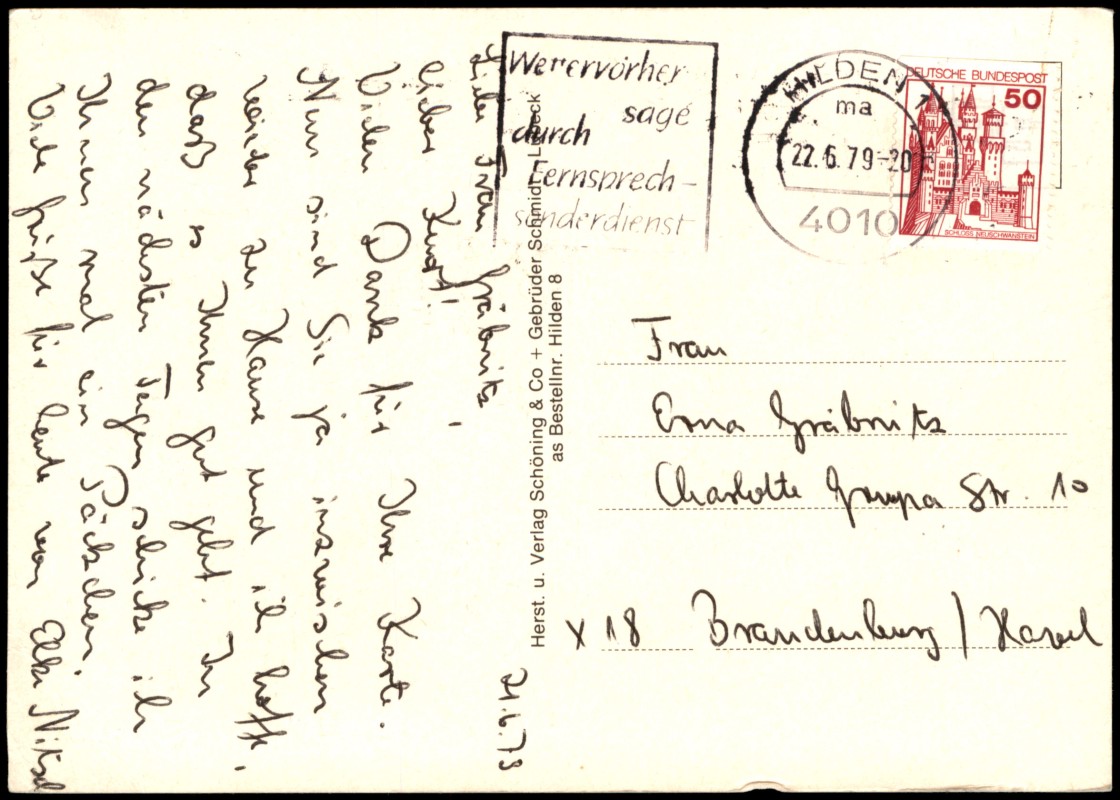 21.6.79
Liebe Frau Gräbnitz,
lieber Kurt!
Vielen Dank für Ihre Karte.
Nun sind Sie ja inzwischen
wieder zu Hause und ich hoffe,
daß es Ihnen gut geht. In
den nächsten Tagen schicke ich
Ihnen mal ein Päckchen.
Viele Grüße für heute von Elke Nitsch
Herst. u. Verlag Schöning & Co + Gebrüder Schmidt Lübeck
as Bestellnr. Hilden 8
Wer ervorher
sage
durch
Fernsprech-
sonderdienst
HILDEN 1
ma
22.6.79-20
4010
DEUTSCHE BUNDESPOST
50
SCHLOSS NEUSCHWANSTEIN
Frau
Erna Gräbnitz
Charlotte Str. 10
X 18 Brandenburg / Havel